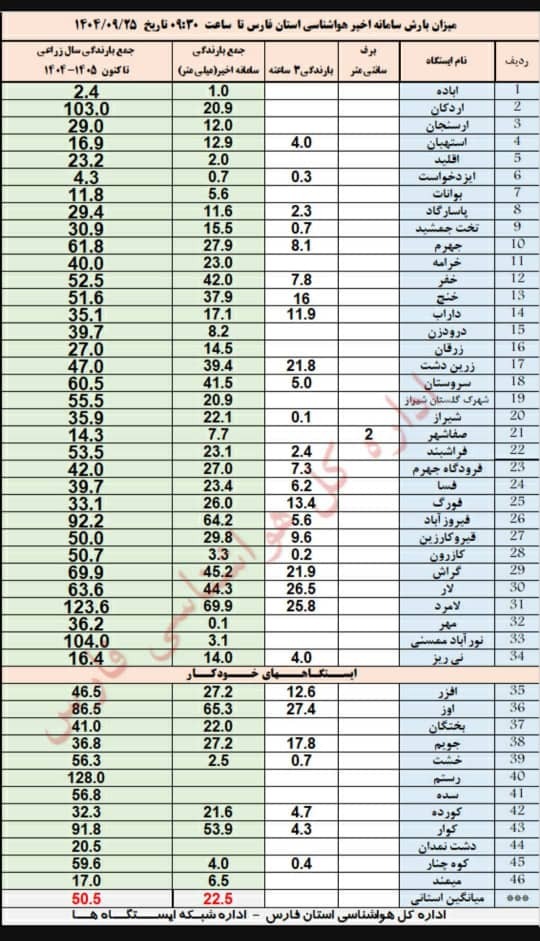 میزان بارش سامانه اخیر هواشناسی استان فارس تا ساعت ۰۹:۳۰ تاریخ ۱۴۰۴/۰۹/۲۵
ردیف نام ایستگاه برف سانتی متر بارندگی۳ ساعته جمع بارندگی سامانه اخیر(میلی متر) جمع بارندگی سال زراعی تاکنون ۱۴۰۵-۱۴۰۴
1 اباده 1.0 2.4
2 اردکان 20.9 103.0
3 ارسنجان 12.0 29.0
4 استهبان 4.0 12.9 16.9
5 اقلید 2.0 23.2
6 ایزدخواست 0.3 0.7 4.3
7 بوانات 5.6 11.8
8 پاسارگاد 2.3 11.6 29.4
9 تخت جمشید 0.7 15.5 30.9
10 جهرم 8.1 27.9 61.8
11 خرامه 23.0 40.0
12 خفر 7.8 42.0 52.5
13 خنج 16 37.9 51.6
14 داراب 11.9 17.1 35.1
15 درودزن 8.2 39.7
16 زرقان 14.5 27.0
17 زرین دشت 21.8 39.4 47.0
18 سروستان 5.0 41.5 60.5
19 شهرک گلستان شیراز 20.9 55.5
20 شیراز 0.1 22.1 35.9
21 صفاشهر 2 7.7 14.3
22 فراشبند 2.4 23.1 53.5
23 فرودگاه جهرم 7.3 27.0 42.0
24 فسا 6.2 23.4 39.7
25 فورگ 13.4 26.0 33.1
26 فیروزآباد 5.6 64.2 92.2
27 قیروکارزین 9.6 29.8 50.0
28 کازرون 0.2 3.3 50.7
29 گراش 21.9 45.2 69.9
30 لار 26.5 44.3 63.6
31 لامرد 25.8 69.9 123.6
32 مهر 0.1 36.2
33 نورآباد ممسنی 3.1 104.0
34 نی ریز 4.0 14.0 16.4
ایستگاههای خودکار
35 افزر 12.6 27.2 46.5
36 اوز 27.4 65.3 86.5
37 بختگان 22.0 41.0
38 جویم 17.8 27.2 36.8
39 خشت 0.7 2.5 56.3
40 رستم 128.0
41 سده 56.8
42 کورده 4.7 21.6 32.3
43 کوار 4.3 53.9 91.8
44 دشت نمدان 20.5
45 کوه چنار 0.4 4.0 59.6
46 میمند 6.5 17.0
*** میانگین استانی 22.5 50.5
اداره کل هواشناسی استان فارس - اداره شبکه ایستگاه ها
اداره کل هواشناسی فارس